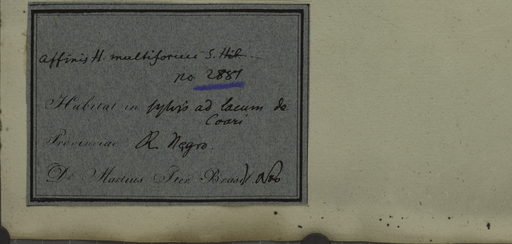 affinis H. multiformis S. Hil
no 2881
Habitat in sylvis ad lacum de
Coari
Provinciae R. Negro.
Dr. Martius Iter Brasil. Nov